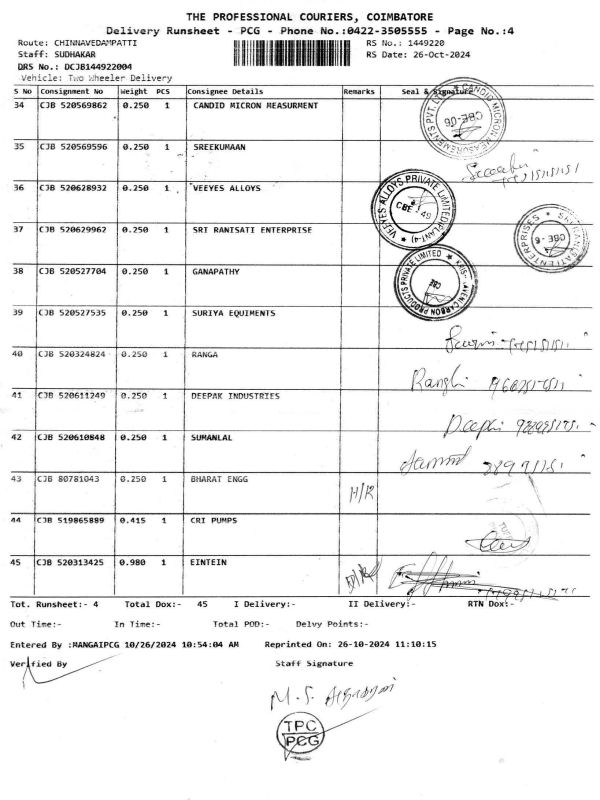 THE PROFESSIONAL COURIERS, COIMBATORE
Delivery Runsheet - PCG - Phone No.:0422-3505555 - Page No.:4
Route: CHINNAVEDAMPATTI RS No.: 1449220
Staff: SUDHAKAR RS Date: 26-Oct-2024
DRS No.: DCJB144922004
Vehicle: Two Wheeler Delivery
S No Consignment No Weight PCS Consignee Details Remarks Seal & Signature
34 CJB 520569862 0.250 1 CANDID MICRON MEASURMENT
CANDID MICRON MEASUREMENTS PVT. LTD. CBE-06
35 CJB 520569596 0.250 1 SREEKUMAAN
36 CJB 520628932 0.250 1 VEEYES ALLOYS
VEEYES ALLOYS PRIVATE LIMITED (PLANT-4) CBE 49
37 CJB 520629962 0.250 1 SRI RANISATI ENTERPRISE
SRI RANISATI ENTERPRISES CBE-6
38 CJB 520527704 0.250 1 GANAPATHY
CARBON PRODUCTS PRIVATE LIMITED CBE
39 CJB 520527535 0.250 1 SURIYA EQUIMENTS
40 CJB 520324824 0.250 1 RANGA
41 CJB 520611249 0.250 1 DEEPAK INDUSTRIES
42 CJB 520610848 0.250 1 SUMANLAL
43 CJB 80781043 0.250 1 BHARAT ENGG
44 CJB 519865889 0.415 1 CRI PUMPS
45 CJB 520313425 0.980 1 EINTEIN
Tot. Runsheet:- 4 Total Dox:- 45 I Delivery:- II Delivery:- RTN Dox:-
Out Time:- In Time:- Total POD:- Delvy Points:-
Entered By :MANGAIPCG 10/26/2024 10:54:04 AM Reprinted On: 26-10-2024 11:10:15
Verified By Staff Signature
M. S.
TPC
PCG